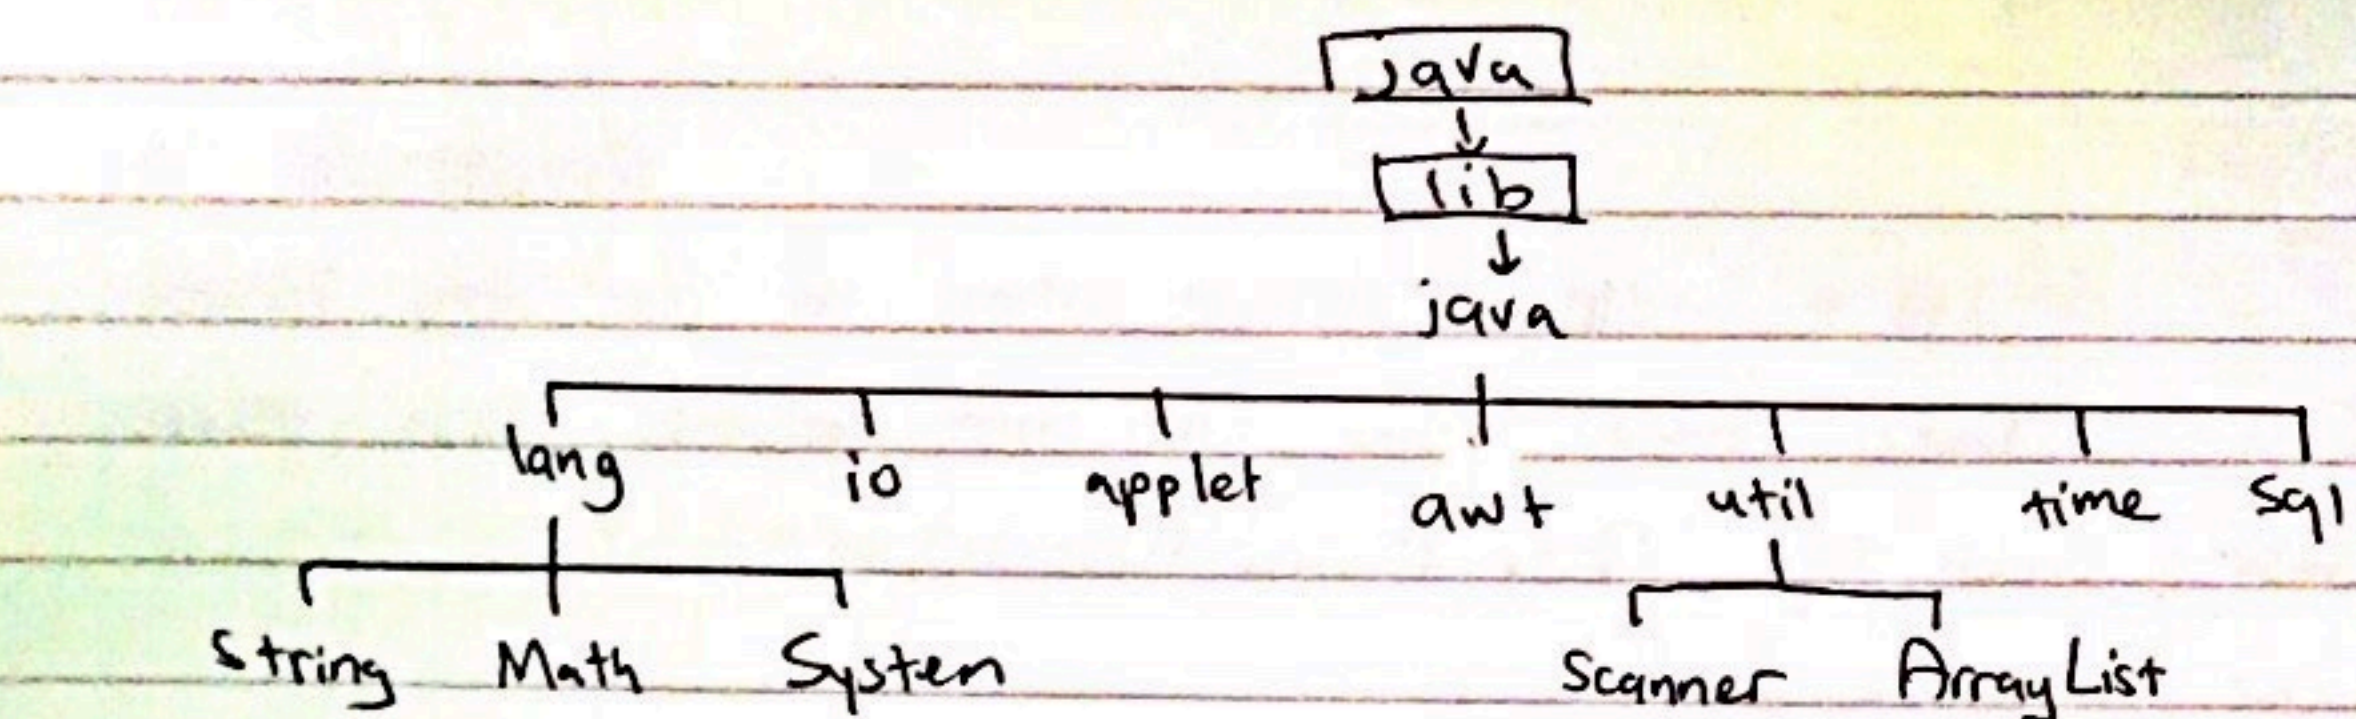 java
lib
java
lang io applet awt util time Sql
String Math System Scanner ArrayList